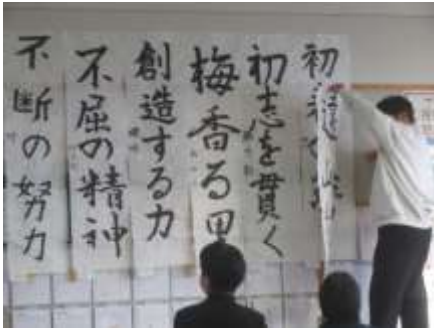 初
初志を貫く
梅香る里
創造する力
不屈の精神
不断の努力